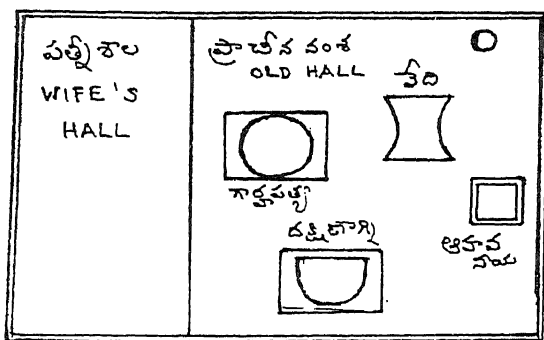 పత్నీశాల
WIFE'S
HALL
ప్రాచీన వంశ
OLD HALL
వేది
గార్హపత్య
దక్షిణాగ్ని
ఆహవ
నీయ